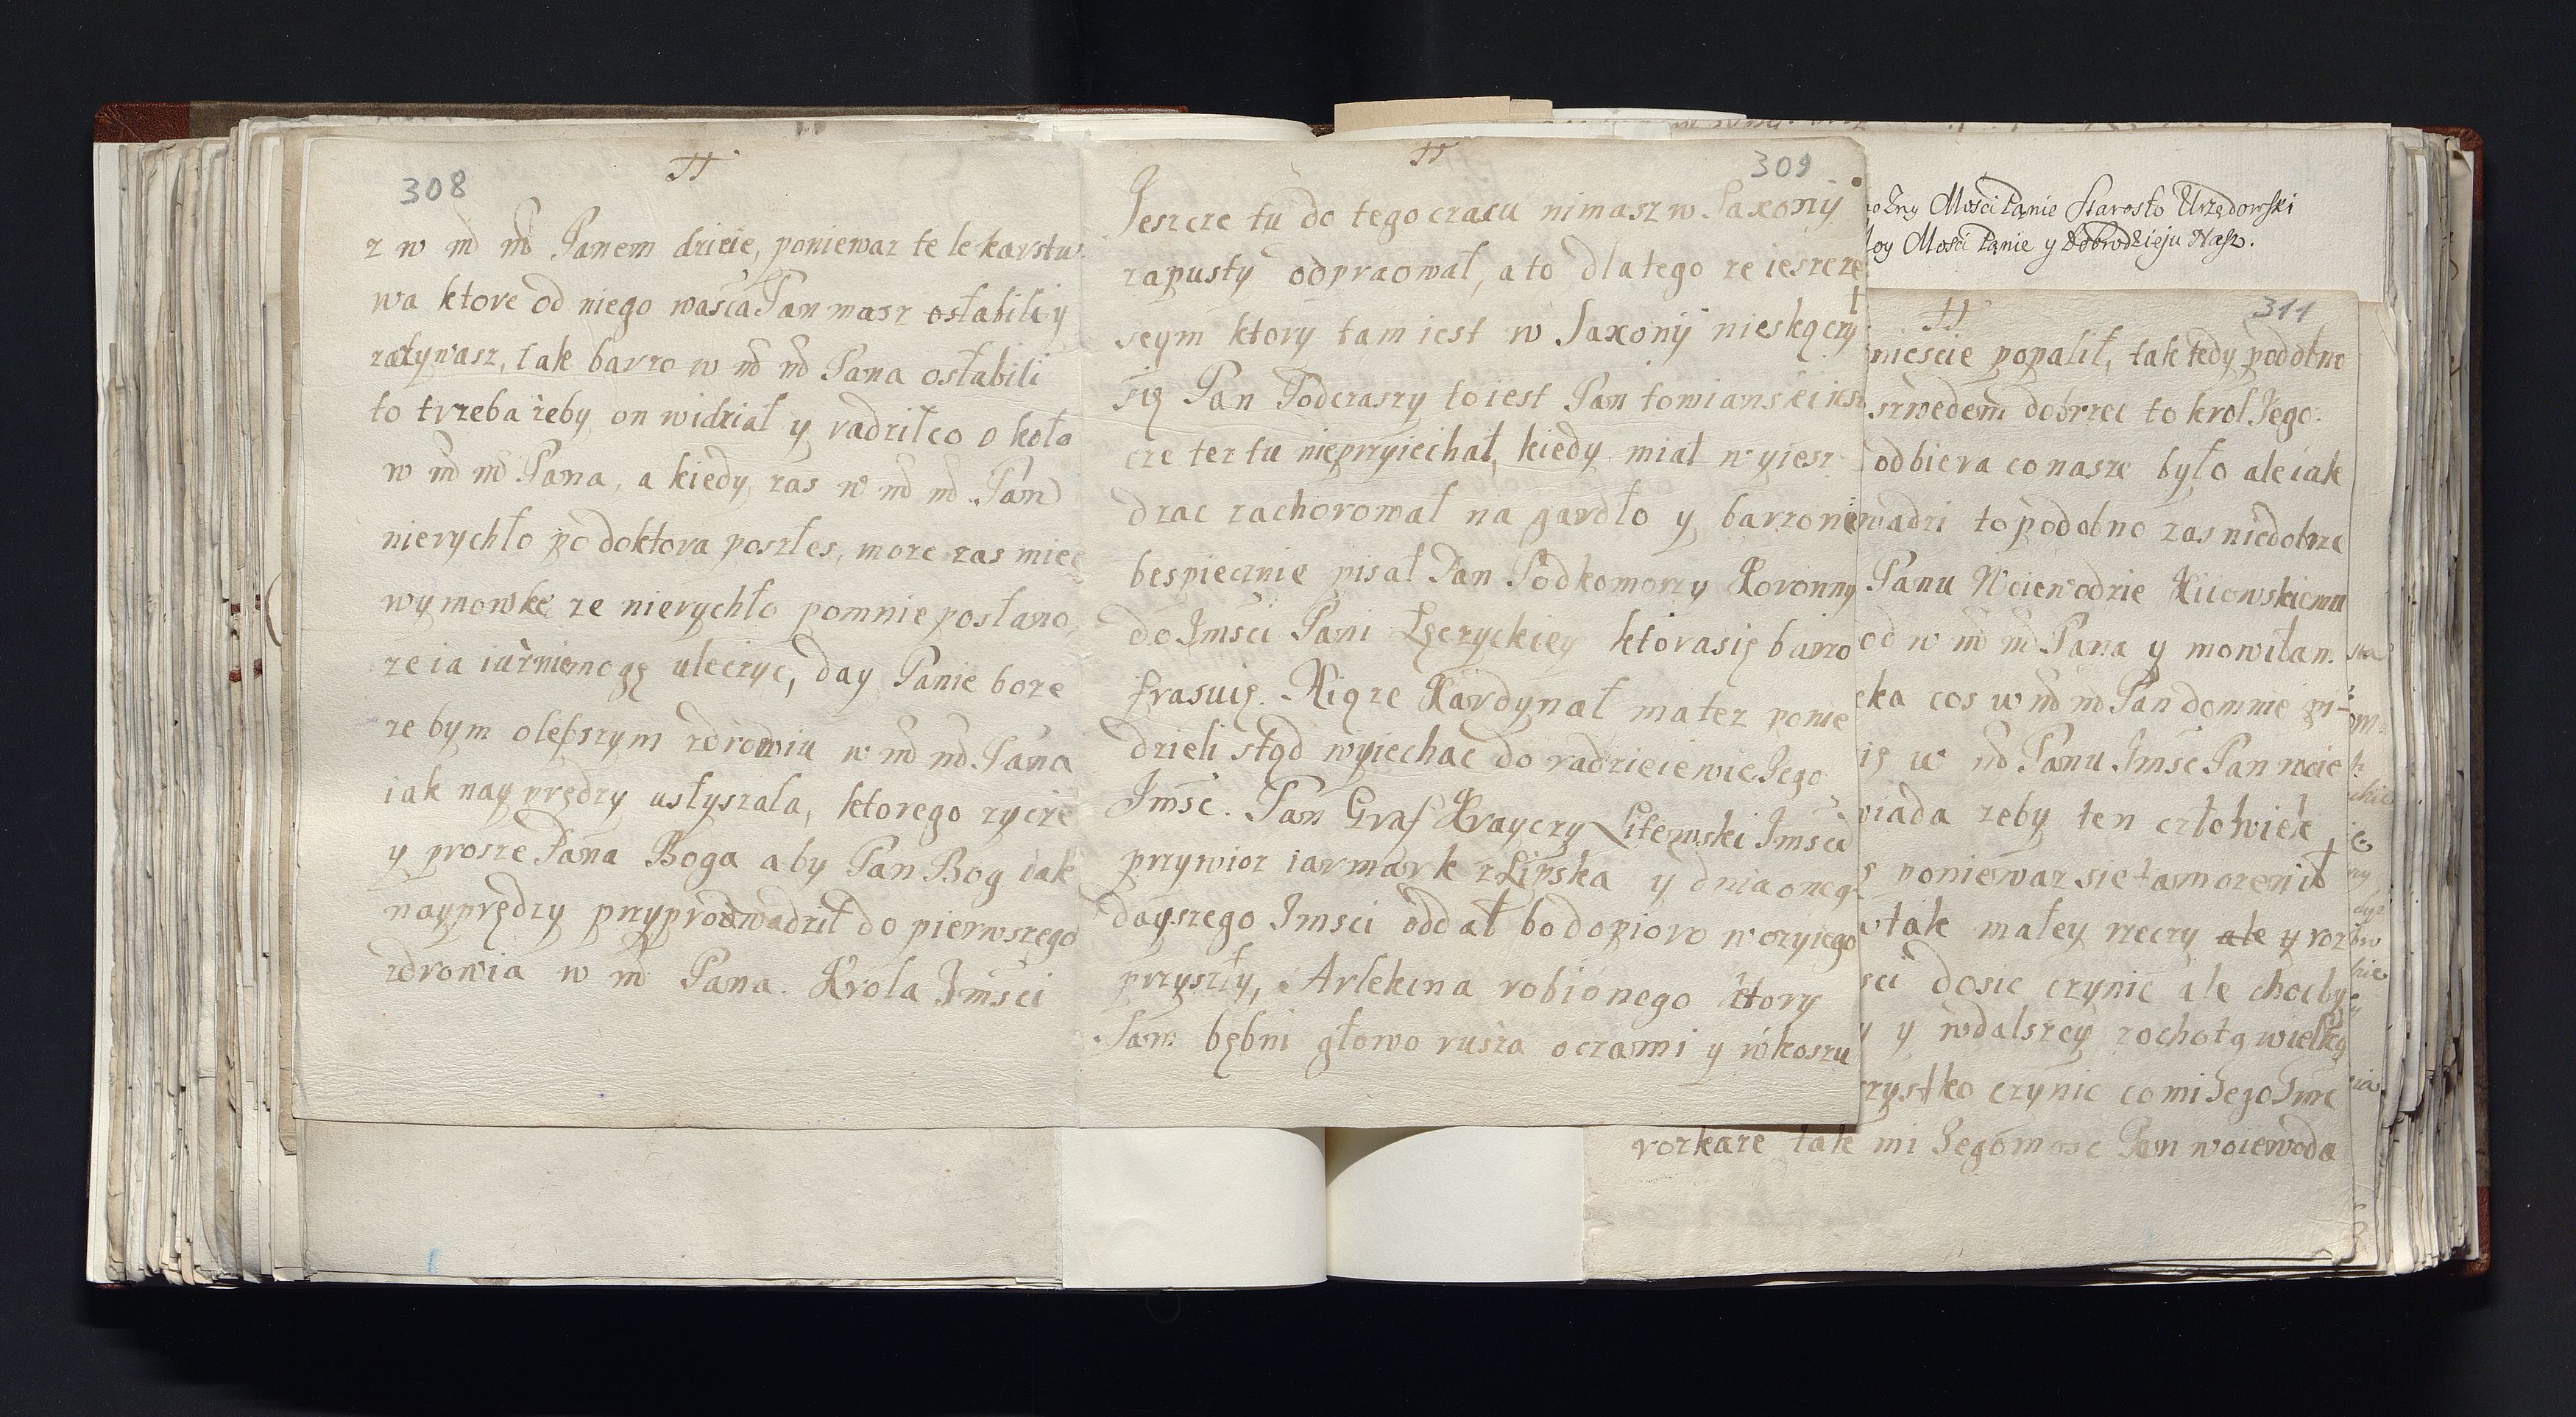 308
z w md md Panem dzieie, poniewaz te lekarstw
wa ktore od niego wascia Pan masz osłabili y
zazywasz, tak barzo w md md Pana osłabili
to trzeba zeby on widział y radził co o koło
w md md Pana, a kiedy zas w md md Pan
nierychło po doktora poszłes, moze zas miec
wymowke ze nierychło pomnie posłano,
ze ia iuz niemogę uleczyc, day Panie boze
ze bym olepszym zdrowiu w md md Pana
iak nayprędzy usłyszała, ktorego zycze
y prosze Pana Boga aby Pan Bog iak
nayprędzy przyprowadził do pierwszego
zdrowia w md Pana. Krola Imsci
309
Jeszcze tu do tego czasu nimasz w Saxonij
zapusty odpraował, a to dlatego ze ieszcze
seym ktory tam iest w Saxonij nieskączył
się Pan Podczaszy to iest Pan towianski iesz
cze tez tu nieprzyiechał, kiedy miał wyiesz
dzac zachorował na gardło y barzo nie
bespiecznie pisał Pan Podkomorzy Koronny
do Imsci Pani Lęczyckiey ktora się barzo
frasuię. Xiąze Kardynał ma tez ponie
dzieli stąd wyiechac do radzieiewic Jego
Imsc. Pan Graf Krayczy Litewski Imsci
przywioz iarmark z Lipska y dnia oneg
dayszego Imsci oddał bo dopioro wozy iego
przyszły, Arlekina robionego ktory
sam bębni głowo rusza oczami y w koszu
żny Mości Panie Starosto Urzędowski
oy Mości Panie y Dobrodzieju Nasz.
311
miescie popalił, tak tedy podobno
szwedem dobrzec to krol Jego
odbiera co nasze było ale iak
wadzi to podobno zas niedobrze
Panu Woiewodzie Kiiowskiemu
od w md md Pana y mowiłam
eka cos w md md Pan do mnie pi-
ię w md Panu Imsc Pan woie
wiada zeby ten człowiek
poniewaz sie tam ozenił
tak małey rzeczy ale y roz
sci dosic czynic ale chocby
y wdalszey zochotą wielką
zystko czynic co mi Jego Imc
rozkaze tak mi Jegomosc Pan woiewoda